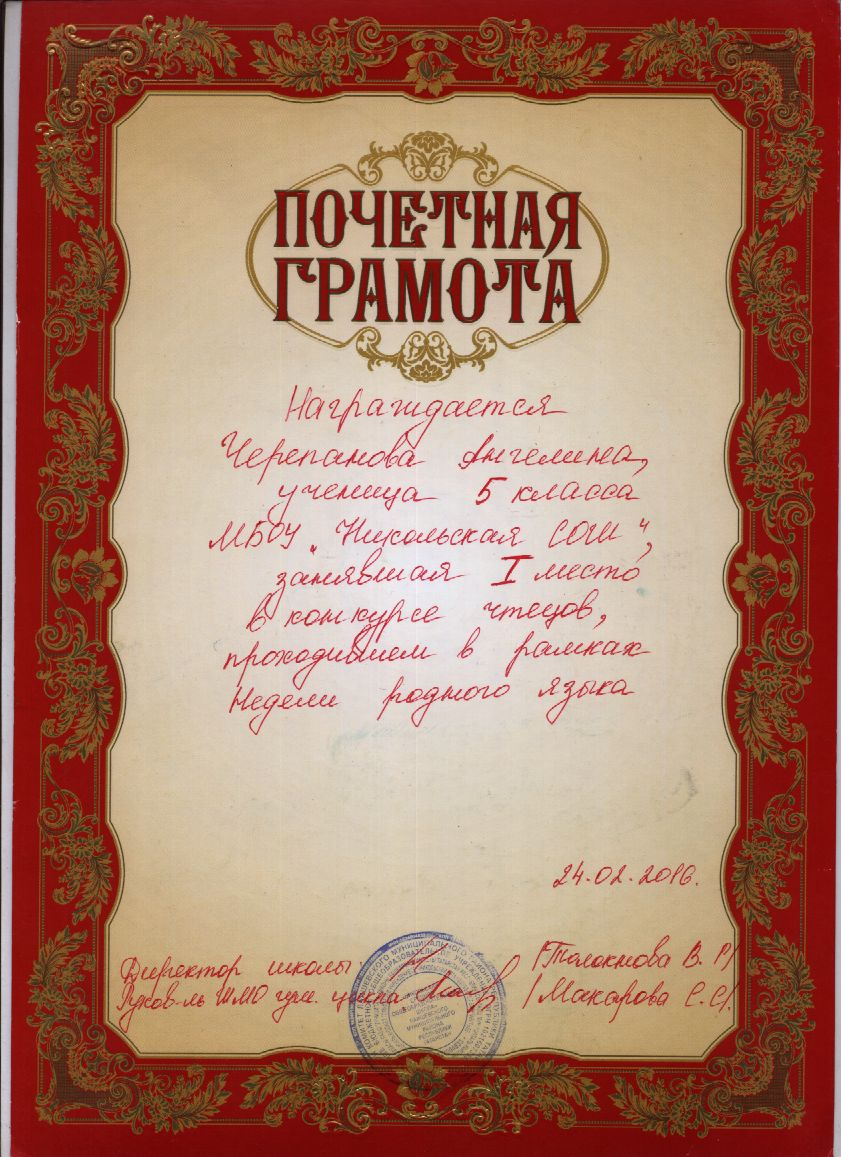 ПОЧЕТНАЯ
ГРАМОТА
Награждается
Черепанова Ангелина,
ученица 5 класса
МБОУ „Никольская СОШ“,
занявшая I место
в конкурсе чтецов,
проходившем в рамках
Недели родного языка
24.02.2016.
Директор школы /Толокнова В. Р/
Руков-ль ШМО гум. цикла /Макарова С.С/.